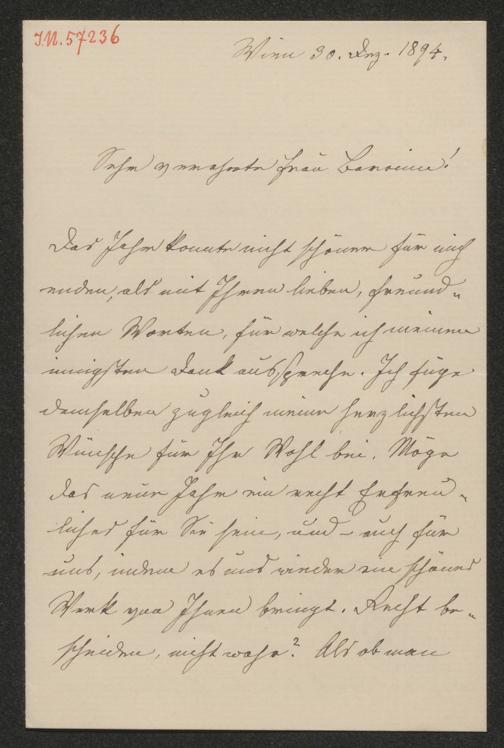 J.N. 57236
Wien 30. Dez. 1894.
Sehr verehrte Frau Baronin!
Das Jahr konnte nicht schöner für mich
enden, als mit Ihren lieben, freund-
lichen Worten, für welche ich meinen
innigsten Dank ausspreche. Ich füge
demselben zugleich meine herzlichsten
Wünsche für Ihr Wohl bei. Möge
das neue Jahr ein recht Erfreu-
liches für Sie sein, und – auch für
uns, indem es uns wieder ein schönes
Werk von Ihnen bringt. Recht be-
scheiden, nicht wahr? Als ob man